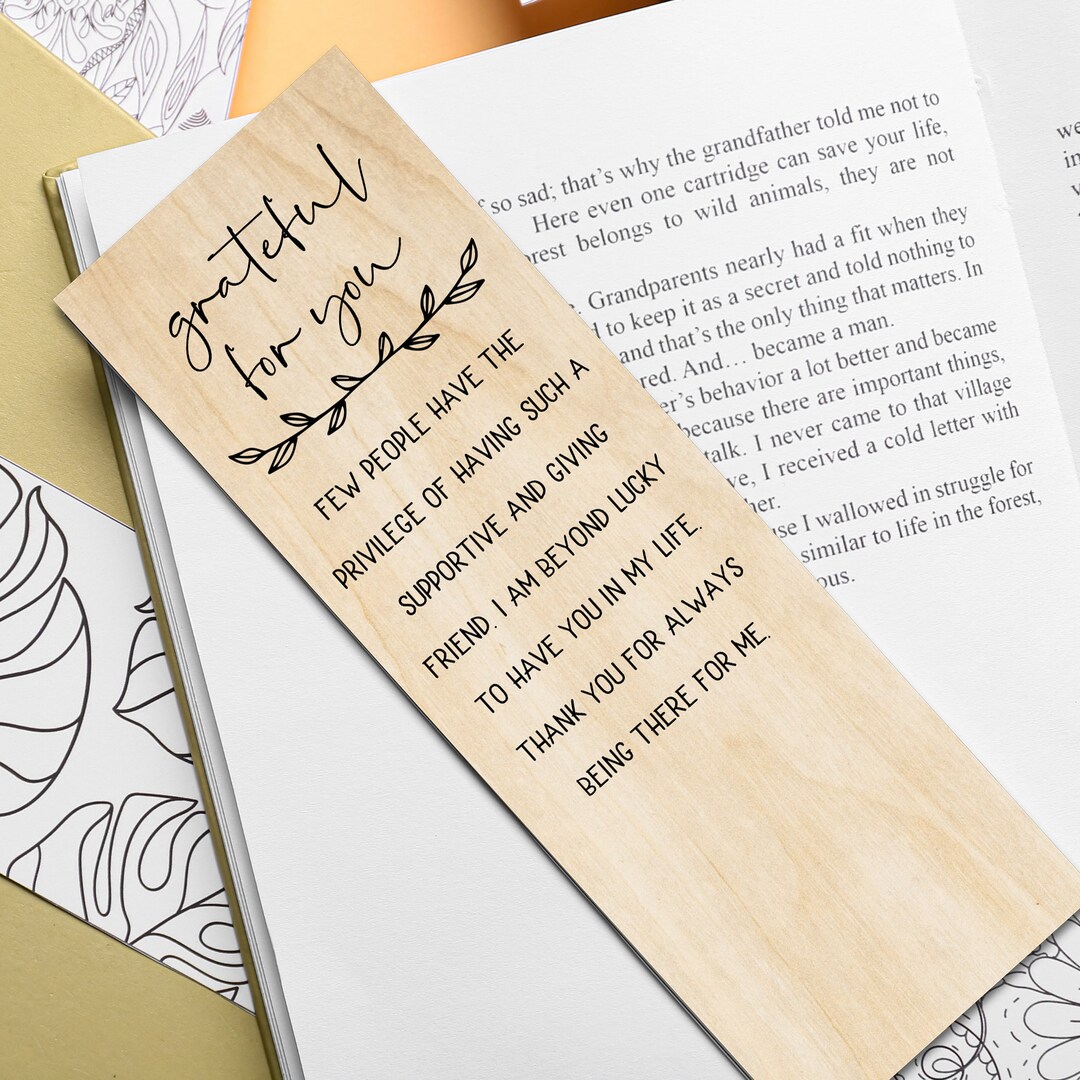 grateful
for you
FEW PEOPLE HAVE THE
PRIVILEGE OF HAVING SUCH A
SUPPORTIVE AND GIVING
FRIEND. I AM BEYOND LUCKY
TO HAVE YOU IN MY LIFE.
THANK YOU FOR ALWAYS
BEING THERE FOR ME.
so sad; that's why the grandfather told me not to
Here even one cartridge can save your life,
belongs to wild animals, they are not
Grandparents nearly had a fit when they
to keep it as a secret and told nothing to
and that's the only thing that matters. In
And… became a man.
behavior a lot better and became
because there are important things,
talk. I never came to that village
I received a cold letter with
I wallowed in struggle for
similar to life in the forest,